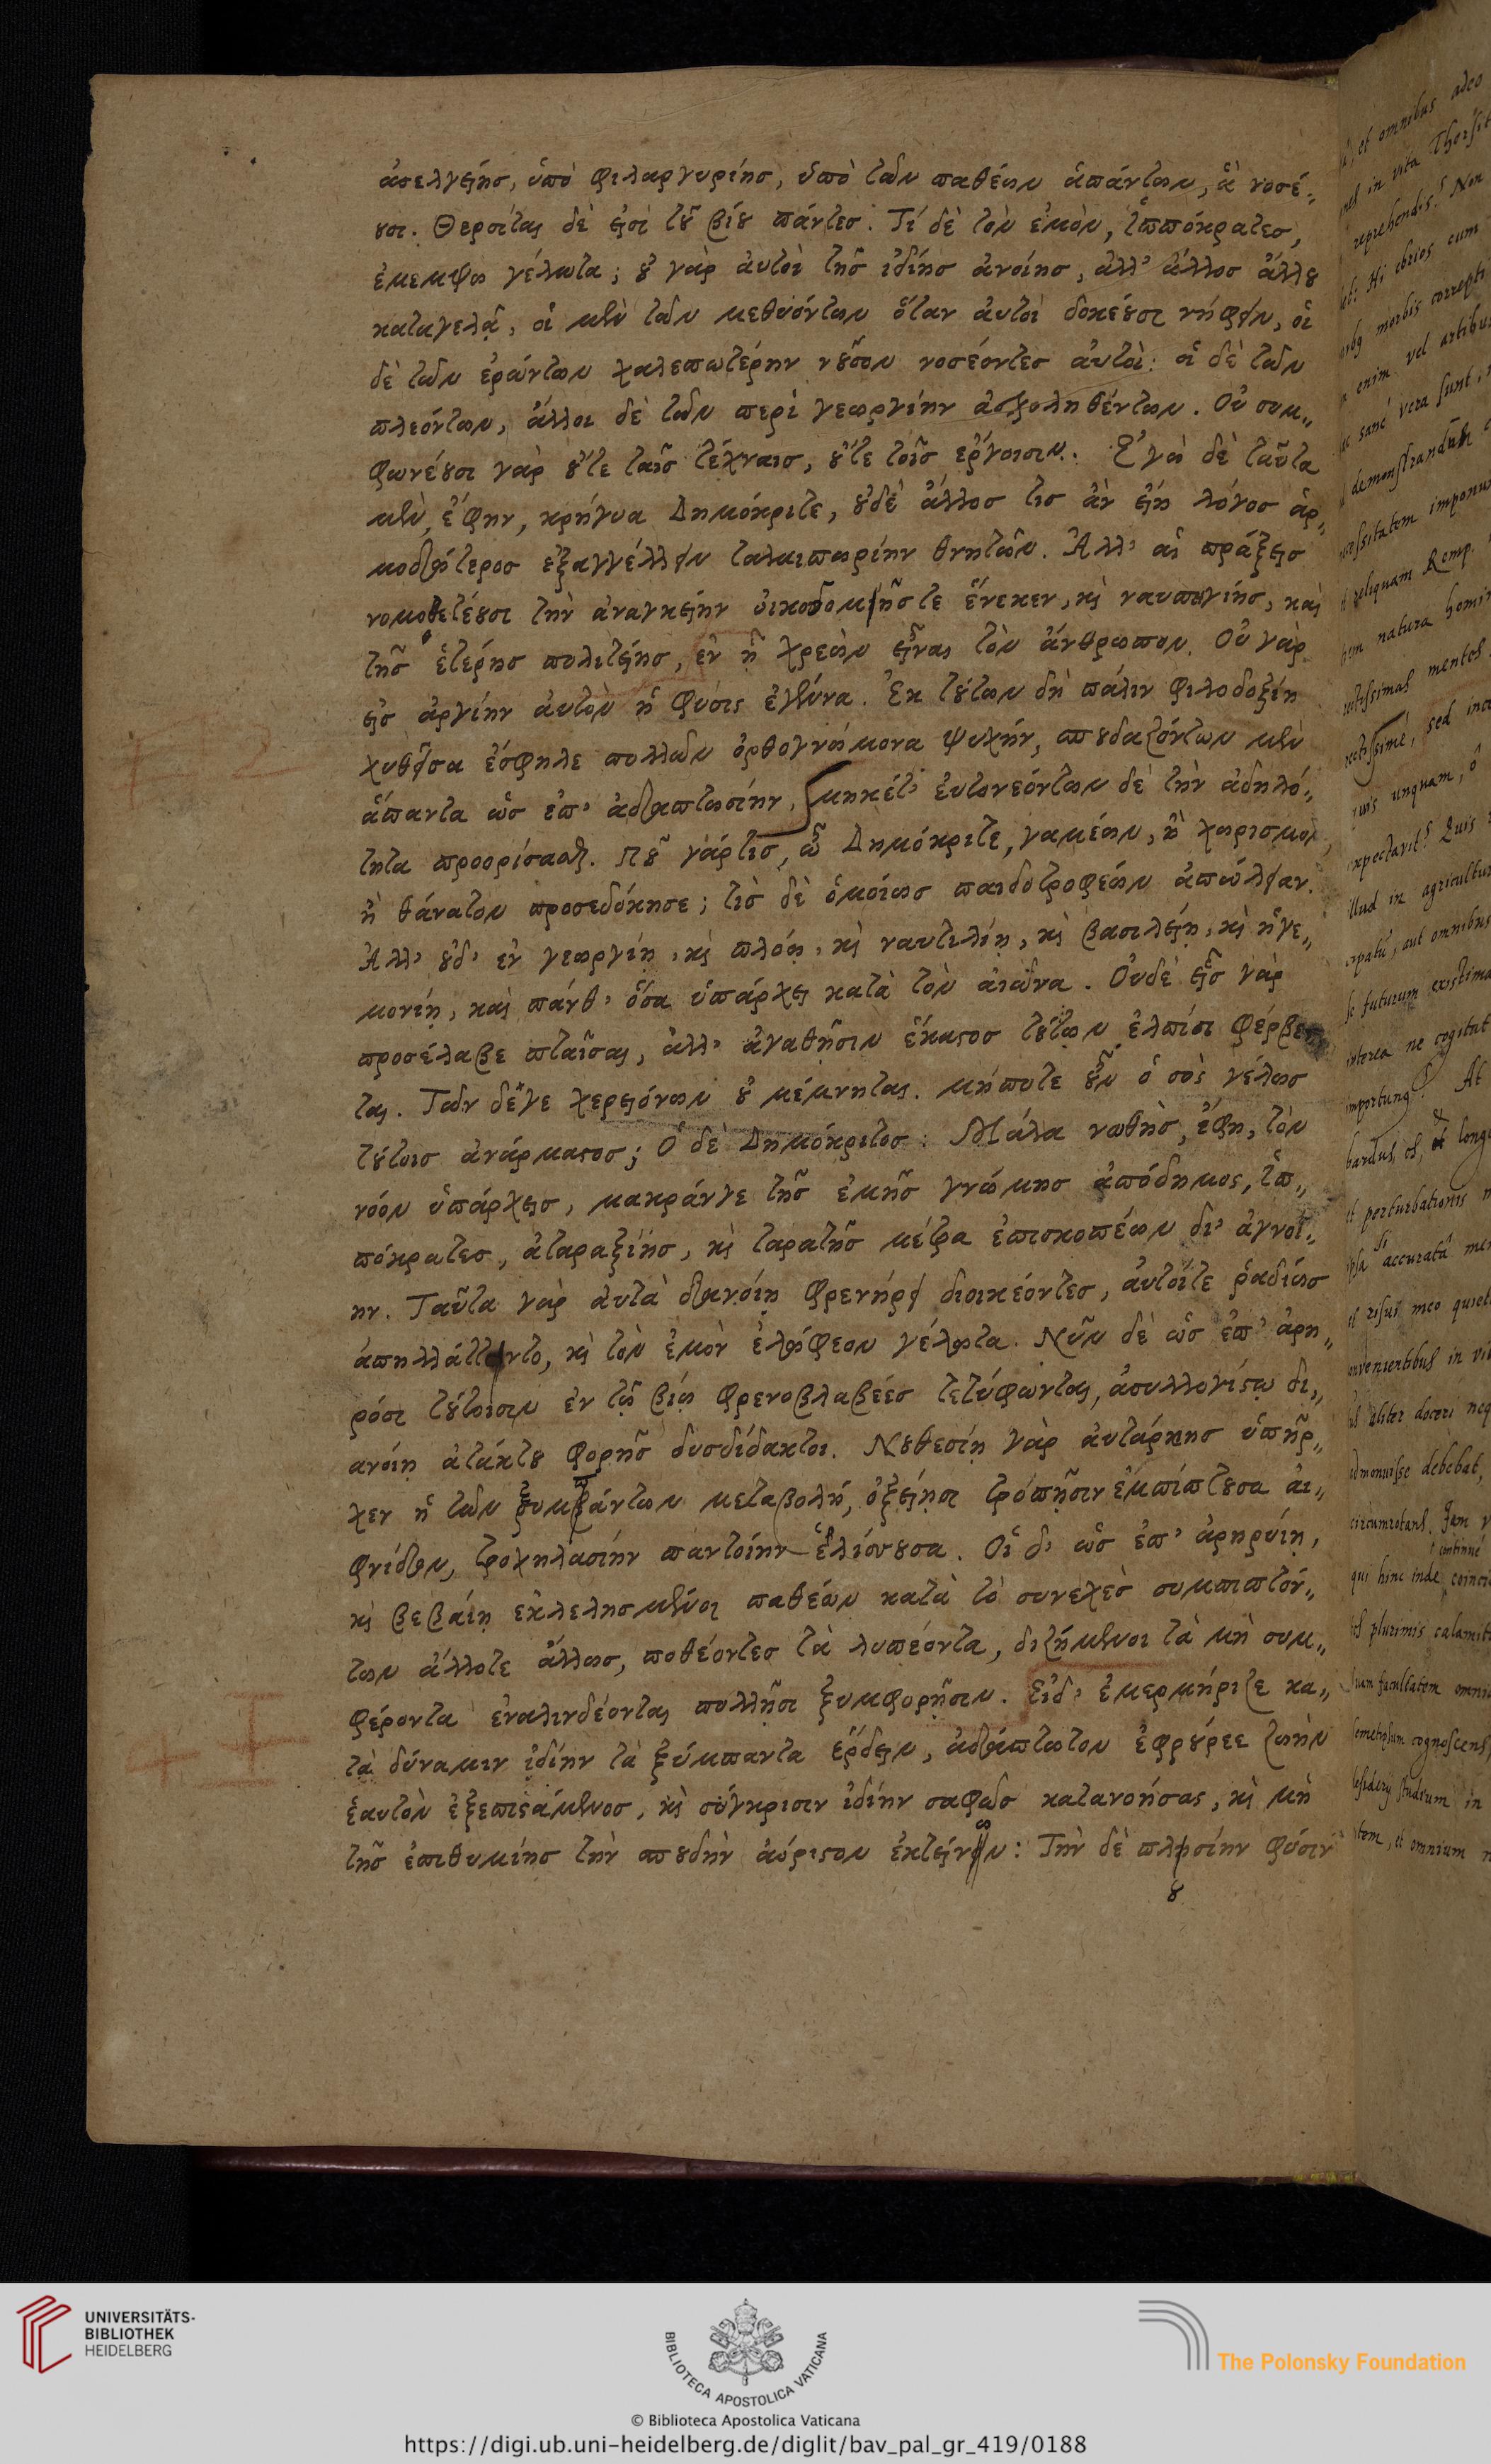 ἀσελγείης, ὑπὸ φιλαργυρίης, ὑπὸ τῶν παθέων ἁπάντων, ἃ νοσέ-
ουσι. Θερσῖται δὲ εἰσὶ τοῦ βίου πάντες. Τί δὲ τὸν ἐμὸν, Ἱππόκρατες,
ἐμεμψω γέλωτα; οὐ γὰρ αὐτοὶ τῆς ἰδίης ἀνοίης, ἀλλ' ἄλλος ἄλλου
καταγελᾷ, οἱ μὲν τῶν μεθυόντων ὅταν αὐτοὶ δοκέουσι νήφειν, οἱ
δὲ τῶν ἐρώντων χαλεπωτέρην νοῦσον νοσέοντες αὐτοὶ: οἱ δὲ τῶν
πλεόντων, ἄλλοι δὲ τῶν περὶ γεωργίην ἀσχοληθέντων. Οὐ συμ-
φωνέουσι γὰρ οὔτε ταῖς τέχναις, οὔτε τοῖς ἔργοισιν. Ἐγὼ δὲ ταῦτα
μὲν, ἔφην, κρήγυα Δημόκριτε, οὐδὲ ἄλλος τις ἂν εἴη λόγος ἁρ-
μοδιώτερος ἐξαγγέλλειν ταλαιπωρίην θνητῶν. Ἀλλ' αἱ πράξεις
νομοθετέουσι τὴν ἀναγκείην οἰκοδομίης τε ἕνεκεν, καὶ ναυπηγίης, καὶ
τῆς ἑτέρης πολιτείης, ἐν ᾗ χρεὼν εἶναι τὸν ἄνθρωπον. Οὐ γὰρ
εἰς ἀργίην αὐτὸν ἡ φύσις ἐγένα. Ἐκ τούτων δὴ πάλιν φιλοδοξίη
χυθεῖσα ἔσφηλε πολλῶν ὀρθογνώμονα ψυχήν, σπουδαζόντων μὲν
ἅπαντα ὡς ἐπ' ἀδιαπτωσίην, μηκέτ' εὐτονεόντων δὲ τὴν ἀδηλό-
τητα προορίσασθαι. Ποῦ γάρ τις, ὦ Δημόκριτε, γαμέων, ἢ χωρισμὸν
ἢ θάνατον προσεδόκησε; τὶς δὲ ὁμοίως παιδοτροφέων ἀπώλειαν.
Ἀλλ' οὐδ' ἐν γεωργίῃ, καὶ πλόῳ, καὶ ναυτιλίῃ, καὶ βασιλείῃ, καὶ ἡγε-
μονίῃ, καὶ πάνθ' ὅσα ὑπάρχει κατὰ τὸν αἰῶνα. Οὐδὲ εἷς γὰρ
προσέλαβε πταῖσαι, ἀλλ' ἀγαθῇσιν ἕκαστος τούτων ἐλπίσι φέρβε-
ται. Τῶν δέγε χερειόνων οὐ μέμνηται. μήποτε οὖν ὁ σὸς γέλως
τούτοις ἀνάρμοστος; Ὁ δὲ Δημόκριτος: Μάλα νωθὴς, ἔφη, τὸν
νόον ὑπάρχεις, μακράνγε τῆς ἐμῆς γνώμης ἀπόδημος, Ἱπ-
πόκρατες, ἀταραξίης, καὶ ταραχῆς μέτρα ἐπισκοπέων δι' ἀγνοί-
ην. Ταῦτα γὰρ αὐτὰ διανοίῃ φρενήρει διοικέοντες, αὐτοί τε ῥαδίως
ἀπηλλάττοντο, καὶ τὸν ἐμὸν ἐκώφεον γέλωτα. Νῦν δὲ ὡς ἐπ' ἀρη-
ρόσι τούτοισιν ἐν τῷ βίῳ φρενοβλαβέες τετύφωνται, ἀσυλλογίστῳ δι-
ανοίῃ ἀτάκτου φορῆς δυσδίδακτοι. Νουθεσίη γὰρ αὐτάρκης ὑπῆρ-
χεν ἡ τῶν ξυμπάντων μεταβολή, ὀξείῃσι τρόπῃσιν ἐμπίπτουσα αἰ-
φνίδιον, τροχηλασίην παντοίην ἑλίσσουσα. Οἱ δ' ὡς ἐπ' ἀρηρυίῃ,
καὶ βεβαίῃ ἐκλελησμένοι παθέων κατὰ τὸ συνεχὲς συμπιπτόν-
των ἄλλοτε ἄλλως, ποθέοντες τὰ λυπέοντα, διζήμενοι τὰ μὴ συμ-
φέροντα ἐναλινδέονται πολλῇσι ξυμφορῇσιν. Εἰδ' ἐμερμήριζε κα-
τὰ δύναμιν ἰδίην τὰ ξύμπαντα ἔρδειν, ἀδιάπτωτον ἐφρούρεε ζωὴν
ἑαυτὸν ἐξεπιστάμενος, καὶ σύγκρισιν ἰδίην σαφῶς κατανοήσας, καὶ μὴ
τῆς ἐπιθυμίης τὴν σπουδὴν ἀόριστον ἐκτείνων: Τὴν δὲ πλουσίην φύσιν
UNIVERSITÄTS-
BIBLIOTHEK
HEIDELBERG
BIBLIOTECA APOSTOLICA VATICANA
The Polonsky Foundation
© Biblioteca Apostolica Vaticana
https://digi.ub.uni-heidelberg.de/diglit/bav_pal_gr_419/0188